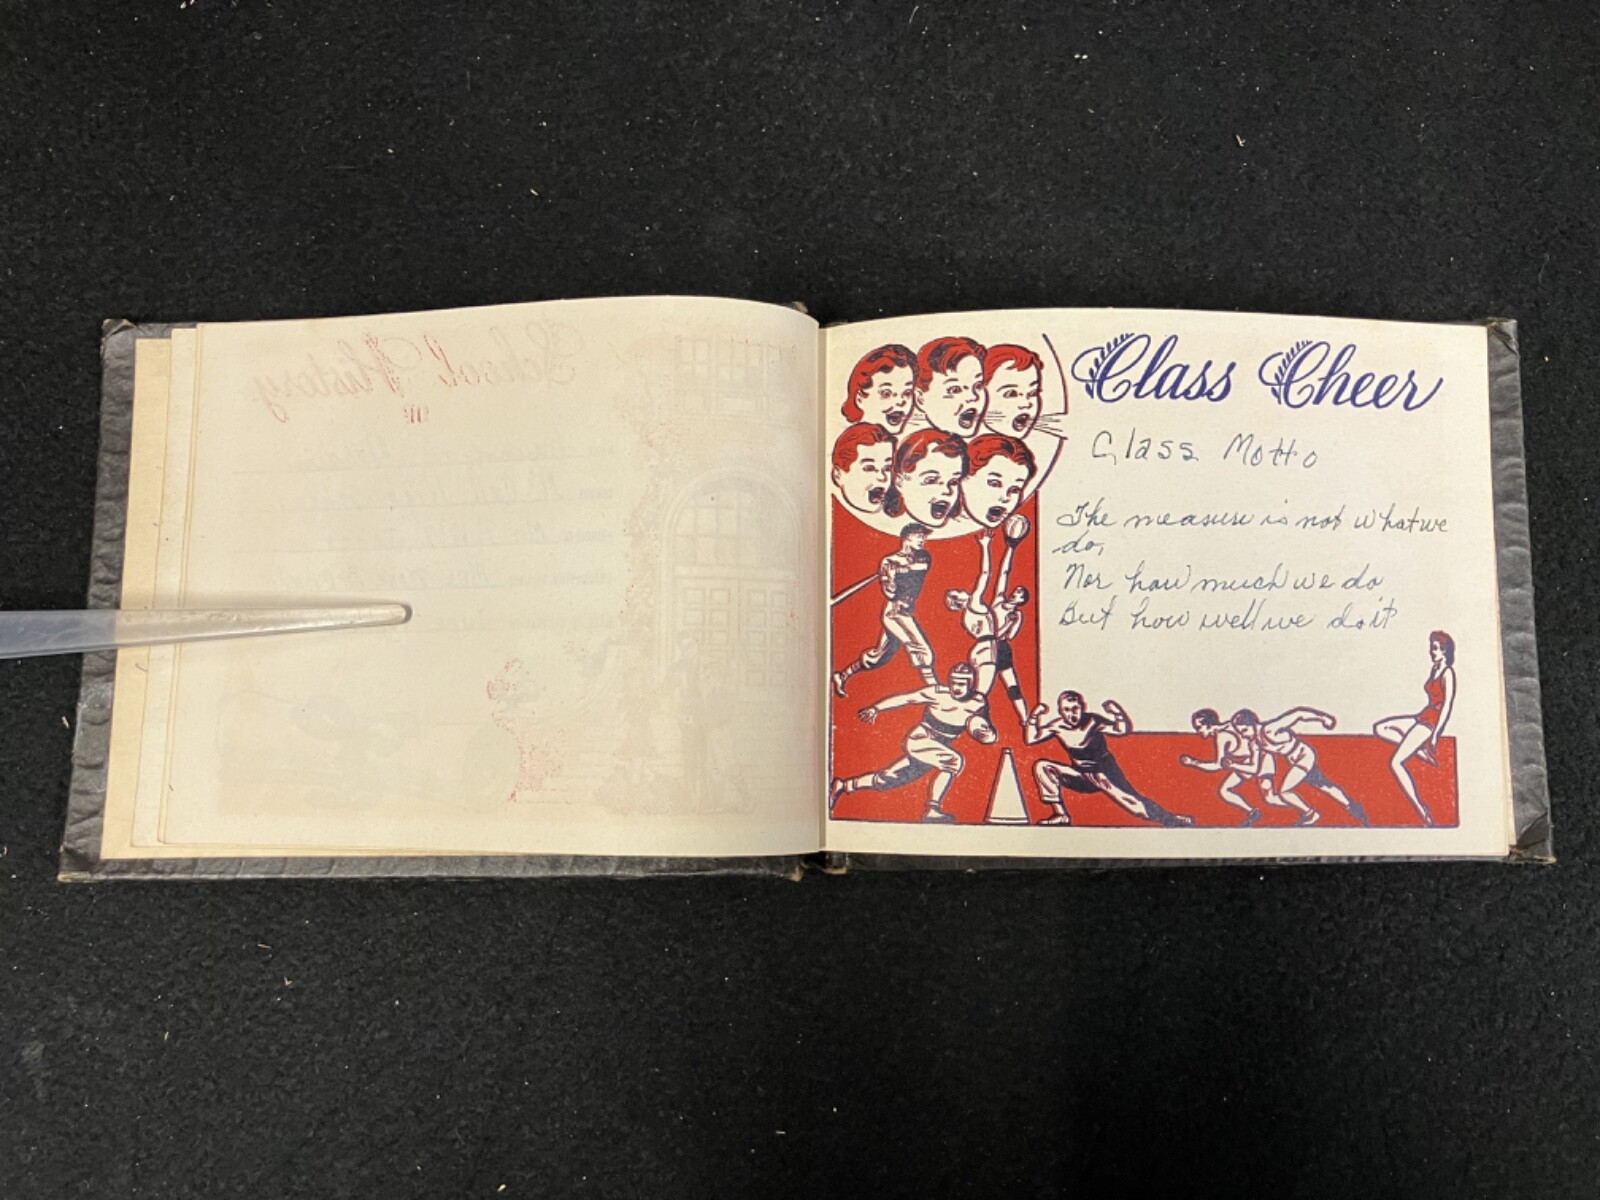 School History
Class Cheer
Class Motto
The measure is not what we
do,
Nor how much we do
But how well we do it